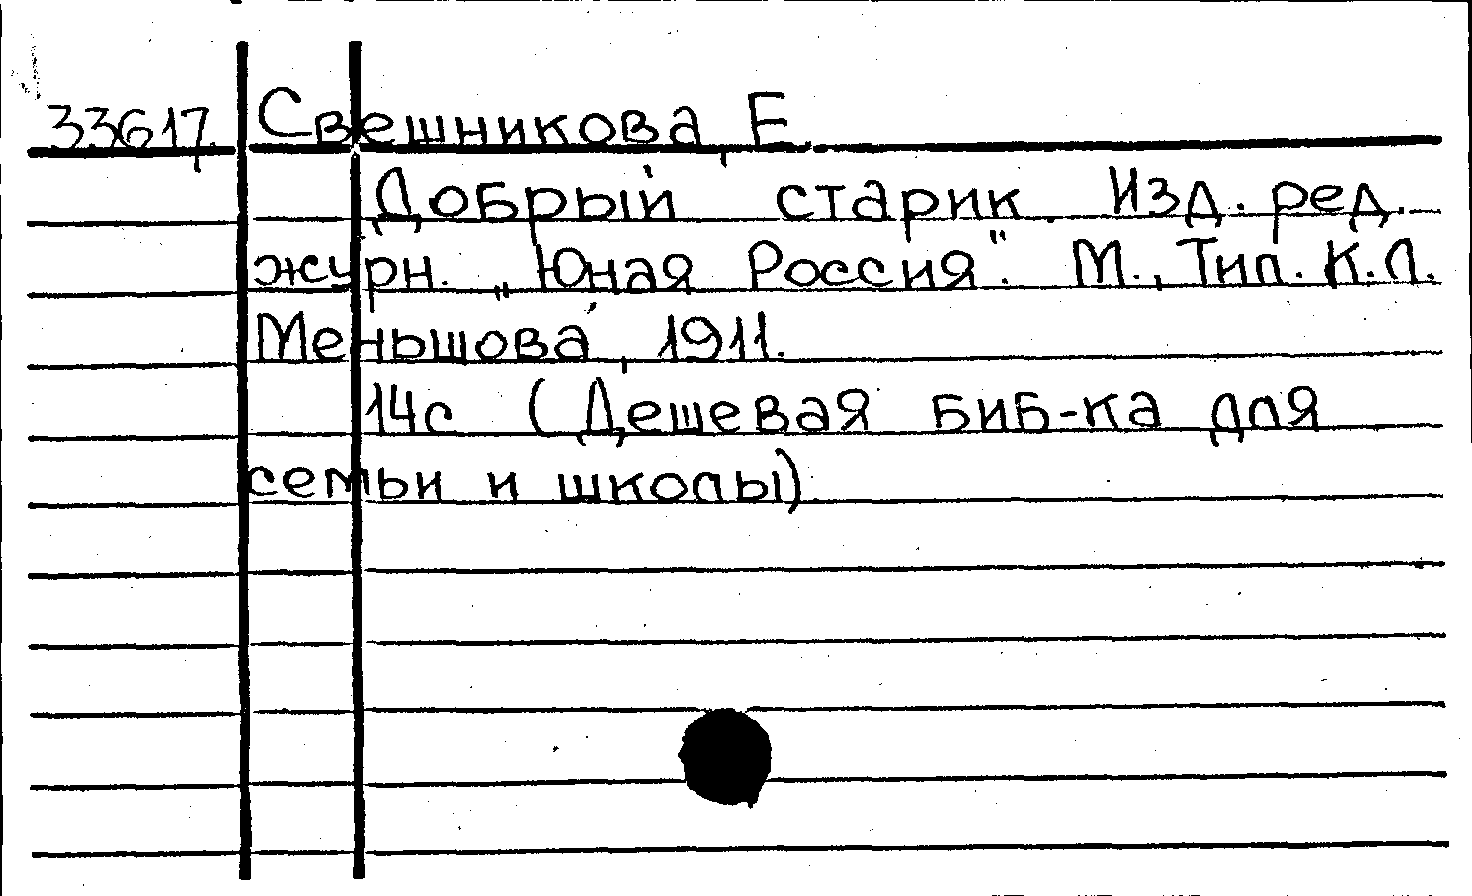 33617. Свешникова, Е.
Добрый старик. Изд. ред.
журн. „Юная Россия". М., Тип. К.Л.
Меньшова, 1911.
14с (Дешевая биб-ка для
семьи и школы).